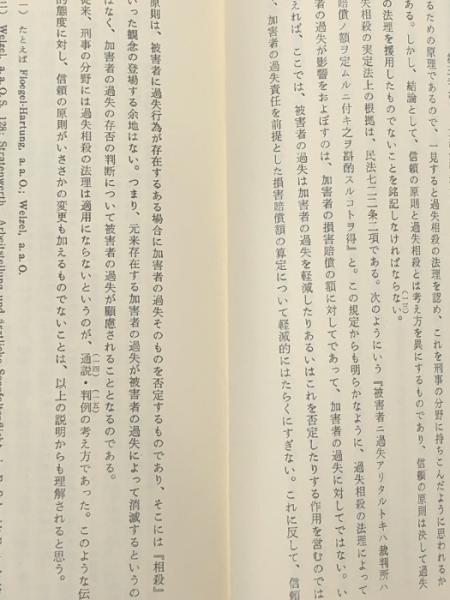 るための原理であるので、一見すると過失相殺の法理を認め、これを刑事の分野に持ちこんだように思われるか
ある。しかし、結論として、信頼の原則と過失相殺とは考え方を異にするものであり、信頼の原則は決して過失
の法理を援用したものでないことを銘記しなければならない。
失相殺の実定法上の根拠は、民法七二二条二項である。次のようにいう『被害者ニ過失アリタルトキハ裁判所ハ
賠償ノ額ヲ定ムルニ付キ之ヲ斟酌スルコトヲ得』と。この規定からも明らかなように、過失相殺の法理によって
者の過失が影響をおよぼすのは、加害者の損害賠償の額に対してであって、加害者の過失に対してではない。い
えれば、ここでは、被害者の過失は加害者の過失を軽減したりあるいはこれを否定したりする作用を営むのでは
、加害者の過失責任を前提とした損害賠償額の算定について軽減的にはたらくにすぎない。これに反して、信頼
原則は、被害者に過失行為が存在するある場合に加害者の過失そのものを否定するものであり、そこには『相殺』
いった観念の登場する余地はない。つまり、元来存在する加害者の過失が被害者の過失によって消滅するというの
はなく、加害者の過失の存否の判断について被害者の過失が顧慮されることとなるのである。
従来、刑事の分野には過失相殺の法理は適用にならないというのが、通説・判例の考え方であった。このような伝
的態度に対し、信頼の原則がいささかの変更も加えるものでないことは、以上の説明からも理解されると思う。
たとえば Floegel-Hartung, a. a. O.; Welzel, a. a. O.
Welzel, a. a. O. S. 128; Stratenwerth, Arbeitsteilung und ärztliche